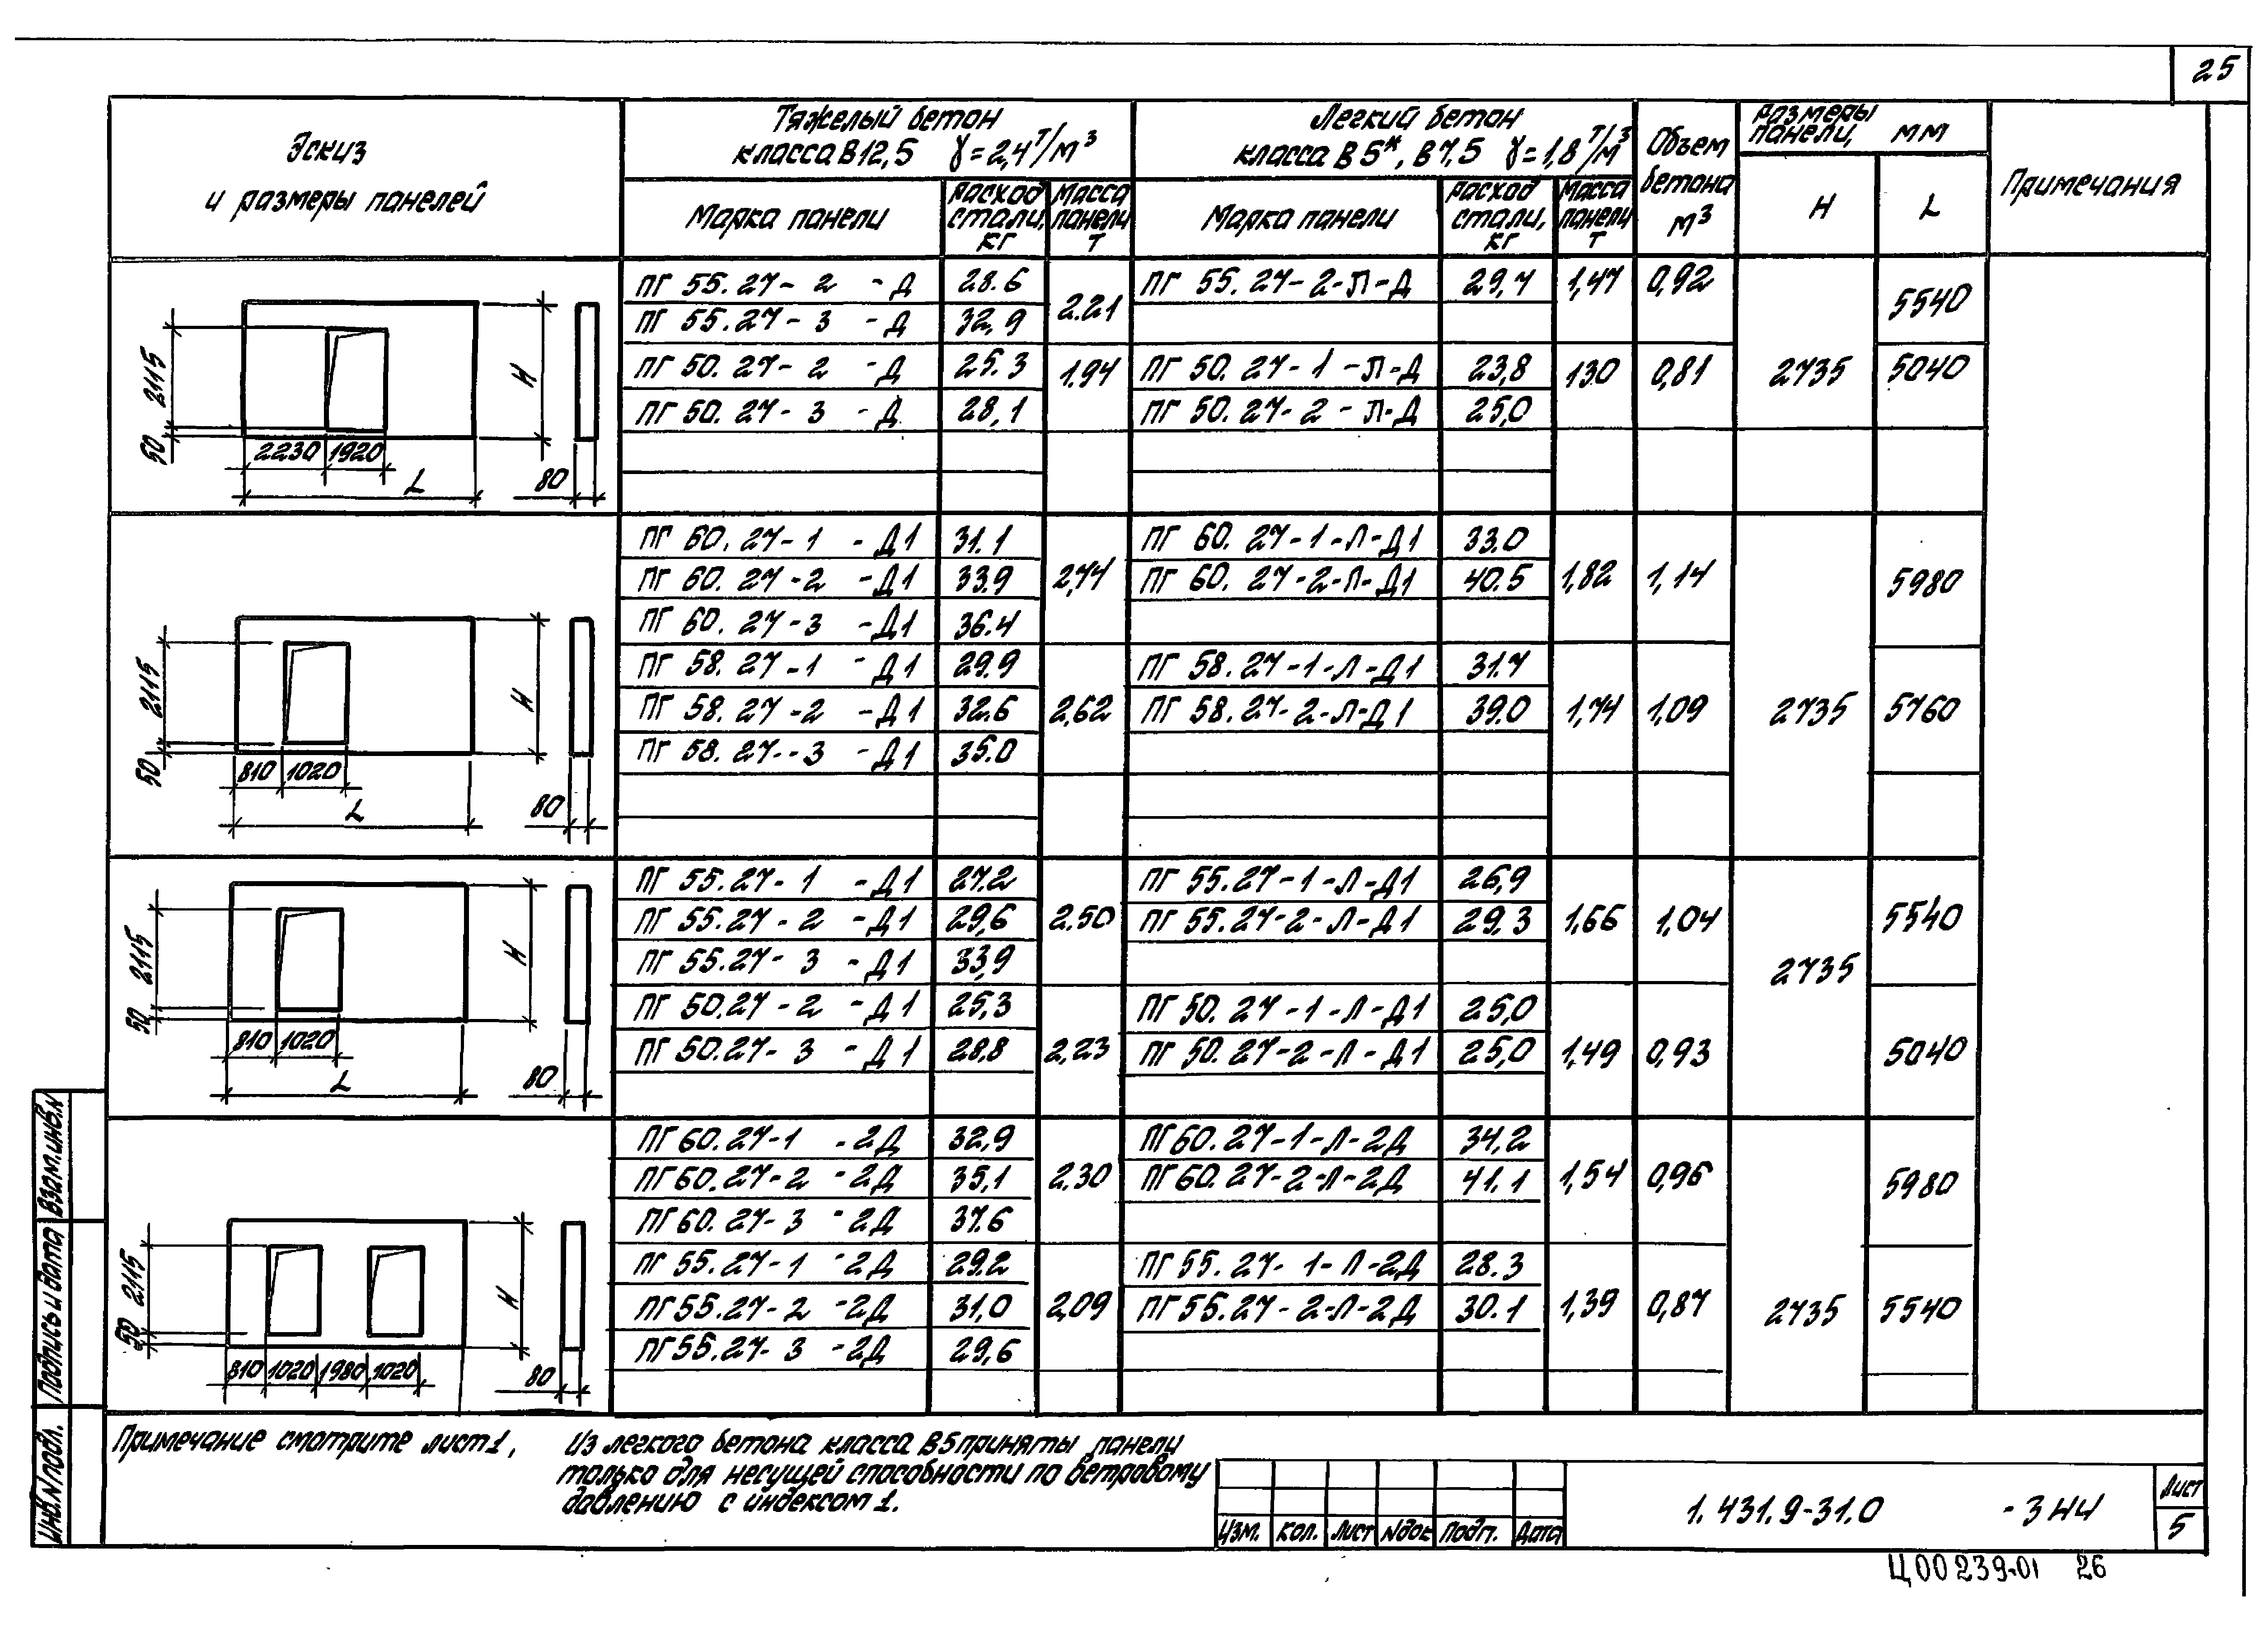 25
Эскиз
и размеры панелей
Тяжелый бетон
класса В12,5 γ=2,4 т/м³
Легкий бетон
класса В5*, В7,5 γ=1,8 т/м³
Объем
бетона
м³
Размеры
панели, мм
Примечания
Марка панели
Расход
стали,
кг
Масса
панели
т
Марка панели
Расход
стали,
кг
Масса
панели
т
H
L
2115
50
2230 1920
L
H
80
ПГ 55.27- 2 -Д 28.6 2.21 ПГ 55.27-2-Л-Д 29,7 1,47 0,92 5540
ПГ 55.27- 3 -Д 32,9
ПГ 50.27- 2 -Д 25.3 1.94 ПГ 50.27-1-Л-Д 23,8 1.30 0,81 2735 5040
ПГ 50.27- 3 -Д 28,1 ПГ 50.27-2-Л-Д 25,0
2115
50
810 1020
L
H
80
ПГ 60.27-1 -Д1 31.1 ПГ 60.27-1-Л-Д1 33.0
ПГ 60.27-2 -Д1 33.9 2,74 ПГ 60.27-2-Л-Д1 40.5 1,82 1,14 5980
ПГ 60.27-3 -Д1 36.4
ПГ 58.27-1 -Д1 29.9 ПГ 58.27-1-Л-Д1 31.7
ПГ 58.27-2 -Д1 32.6 2,62 ПГ 58.27-2-Л-Д1 39.0 1,74 1,09 2735 5760
ПГ 58.27--3 -Д1 35.0
2115
50
810 1020
L
H
80
ПГ 55.27-1 -Д1 27.2 ПГ 55.27-1-Л-Д1 26,9
ПГ 55.27-2 -Д1 29,6 2.50 ПГ 55.27-2-Л-Д1 29,3 1,66 1,04 5540
ПГ 55.27-3 -Д1 33,9 2735
ПГ 50.27-2 -Д1 25,3 ПГ 50.27-1-Л-Д1 25,0
ПГ 50.27-3 -Д1 28,8 2,23 ПГ 50.27-2-Л-Д1 25,0 1,49 0,93 5040
2115
50
810 1020 1980 1020
H
80
ПГ 60.27-1 -2Д 32,9 ПГ 60.27-1-Л-2Д 34,2
ПГ 60.27-2 -2Д 35,1 2,30 ПГ 60.27-2-Л-2Д 41.1 1,54 0,96 5980
ПГ 60.27-3 -2Д 37.6
ПГ 55.27-1 -2Д 29.2 ПГ 55.27-1-Л-2Д 28.3
ПГ 55.27-2 -2Д 31,0 2,09 ПГ 55.27-2-Л-2Д 30.1 1,39 0,87 2735 5540
ПГ 55.27-3 -2Д 29,6
Примечание смотрите лист 1,
Из легкого бетона класса В5 приняты панели
только для несущей способности по ветровому
давлению с индексом 1.
Изм. Кол. Лист №док Подп. Дата
1.431.9-31.0 -3НИ
Лист
5
Ц00239-01 26
Взам.инв.N
Подпись и дата
Инв.N подл.